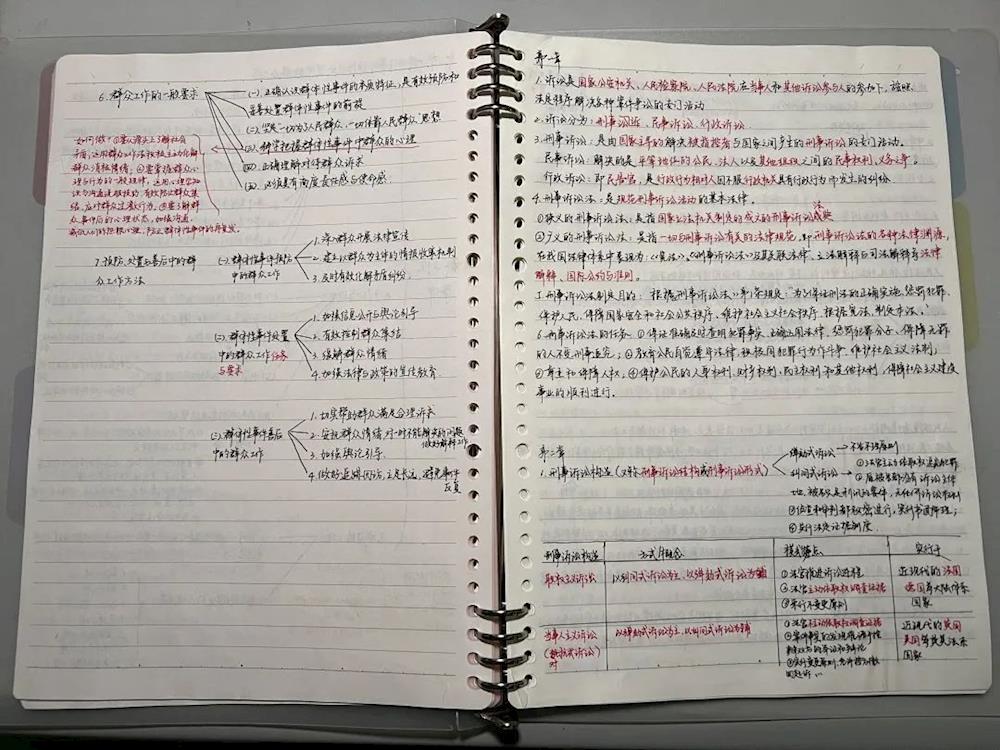 6.群众工作的一般要求
(一).正确认识群体性事件的本质特征,是有效预防和
妥善处置群体性事件的前提
(二).坚定一切为了人民群众,一切依靠人民群众"思想
(三).科学把握群体性事件中群众的心理
(四).正确理解对待群众诉求
(五).必须具有高度责任感与使命感
如何做?①要从源头上了解社会
矛盾,运用群众工作法积极主动化解
群众消极情绪,②要掌握群众心
理与行为的一般规律,运用心理学知
识为沟通
结,应对群众过激行为。③要了解群
众事件后的心理状态,加强沟通,
防止群体性事件的再复发。
7.预防、处置与善后中的群
众工作方法
(一).群体性事件预防
中的群众工作
1.深入群众开展法律宣传
2.建立以群众为主体的情报收集机制
3.及时有效化解矛盾纠纷.
(二).群体性事件处置
中的群众工作任务
与要求
1.加强信息公开与舆论引导
2.有效控制群众集结
3.缓解群众情绪
4.加强法律与政策的宣传教育
(三).群体性事件善后
中的群众工作
1.切实帮助群众满足合理诉求
2.安抚群众情绪,对一时不能解决的问题
做好解释工作
3.加强舆论引导.
4.做好追踪回访,立足长远,避免事件
反复
第一章
1.诉讼是国家公安机关、人民检察院、人民法院在当事人和其他诉讼参与人的参加下,按照
法定程序解决各种案件争讼的专门活动
2.诉讼分为:刑事诉讼、民事诉讼、行政诉讼.
3.刑事诉讼,是由国家主导的解决被指控者与国家之间产生的刑事争讼的专门活动。
民事诉讼:解决的是平等地位的公民、法人以及其他组织之间的民事权利、义务之争;
行政诉讼:即民告官,是行政行为相对人因不服行政机关具有行政行为而发生的纠纷.
4.刑事诉讼法,是规范刑事诉讼活动的基本法律。
①狭义的刑事诉讼法:是指国家立法机关制定的成文的刑事诉讼法典
②广义的刑事诉讼法:是指一切与刑事诉讼有关的法律规范,即刑事诉讼法的各种法律渊源,
在我国法律体系中表现为:《宪法》、《刑事诉讼法》及其关联法律、立法解释与司法解释有法律
解释、国际公约与准则。
5.刑事诉讼法制定目的:根据刑事诉讼法》第1条规定:"为了保证刑法的正确实施,惩罚犯罪,
保护人民,保障国家安全和社会公共秩序,维护社会主义社会秩序,根据宪法,制定本法。"
6.刑事诉讼法的任务:①保证准确及时查明犯罪事实,正确应用法律,惩罚犯罪分子,保障无罪
的人不受刑事追究;②教育公民自觉遵守法律,积极同犯罪行为作斗争,维护社会主义法制;
③尊重和保障人权;④保护公民的人身权利、财产权利、民主权利和其他权利,保障社会主义建设
事业的顺利进行.
第二章
1.刑事诉讼构造(又称刑事诉讼结构或刑事诉讼形式)
弹劾式诉讼→不告不理原则
纠问式诉讼→
①法官主动依职权追究犯罪
②原被告都没有诉讼主体
地位,被告人是刑讯的客体,无任何诉讼权利
③侦查和审判都秘密进行,实行书面审理;
④实行法定证据制度.
刑事诉讼构造 方式与理念 模式特点 实行于
职权主义诉讼 以纠问式诉讼为主,以弹劾式诉讼为辅 ①法官推进诉讼进程
②法官主动依职权调查证据
③实行不变更原则
近现代的法国
德国等大陆体系
国家
当事人主义诉讼
(对抗式诉讼)
对
以弹劾式诉讼为主,以纠问式诉讼为辅
①法官
②案件事实的发现
近现代的英国
美国等英美法系
国家